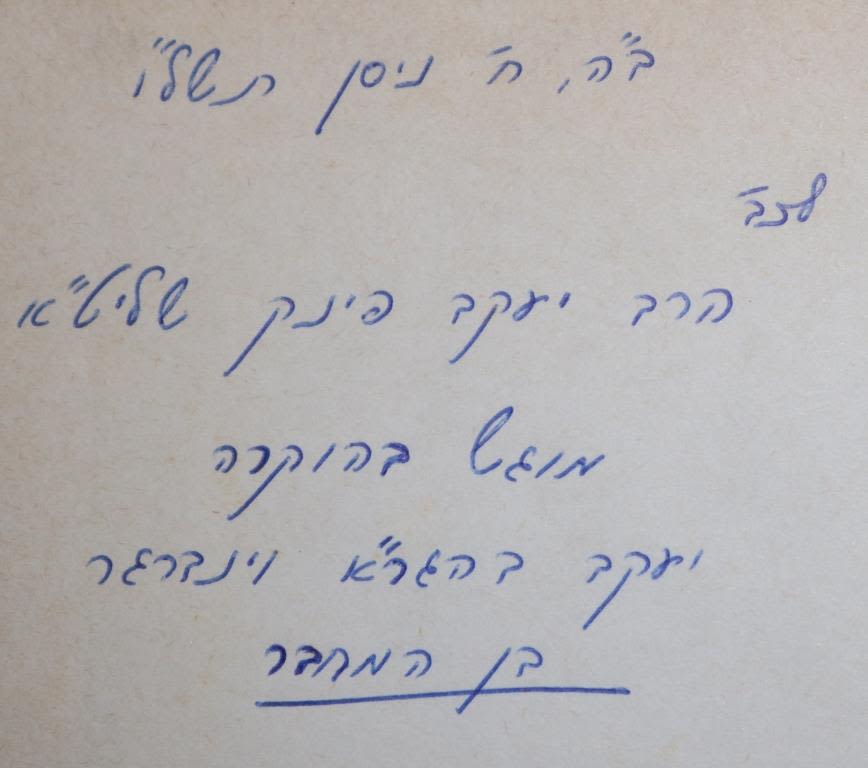 ב"ה, ח' ניסן תשל"ו
לכב'
הרב יעקב פינק שליט"א
מוגש בהוקרה
יעקב בהגר"א וינברגר
בן המחבר